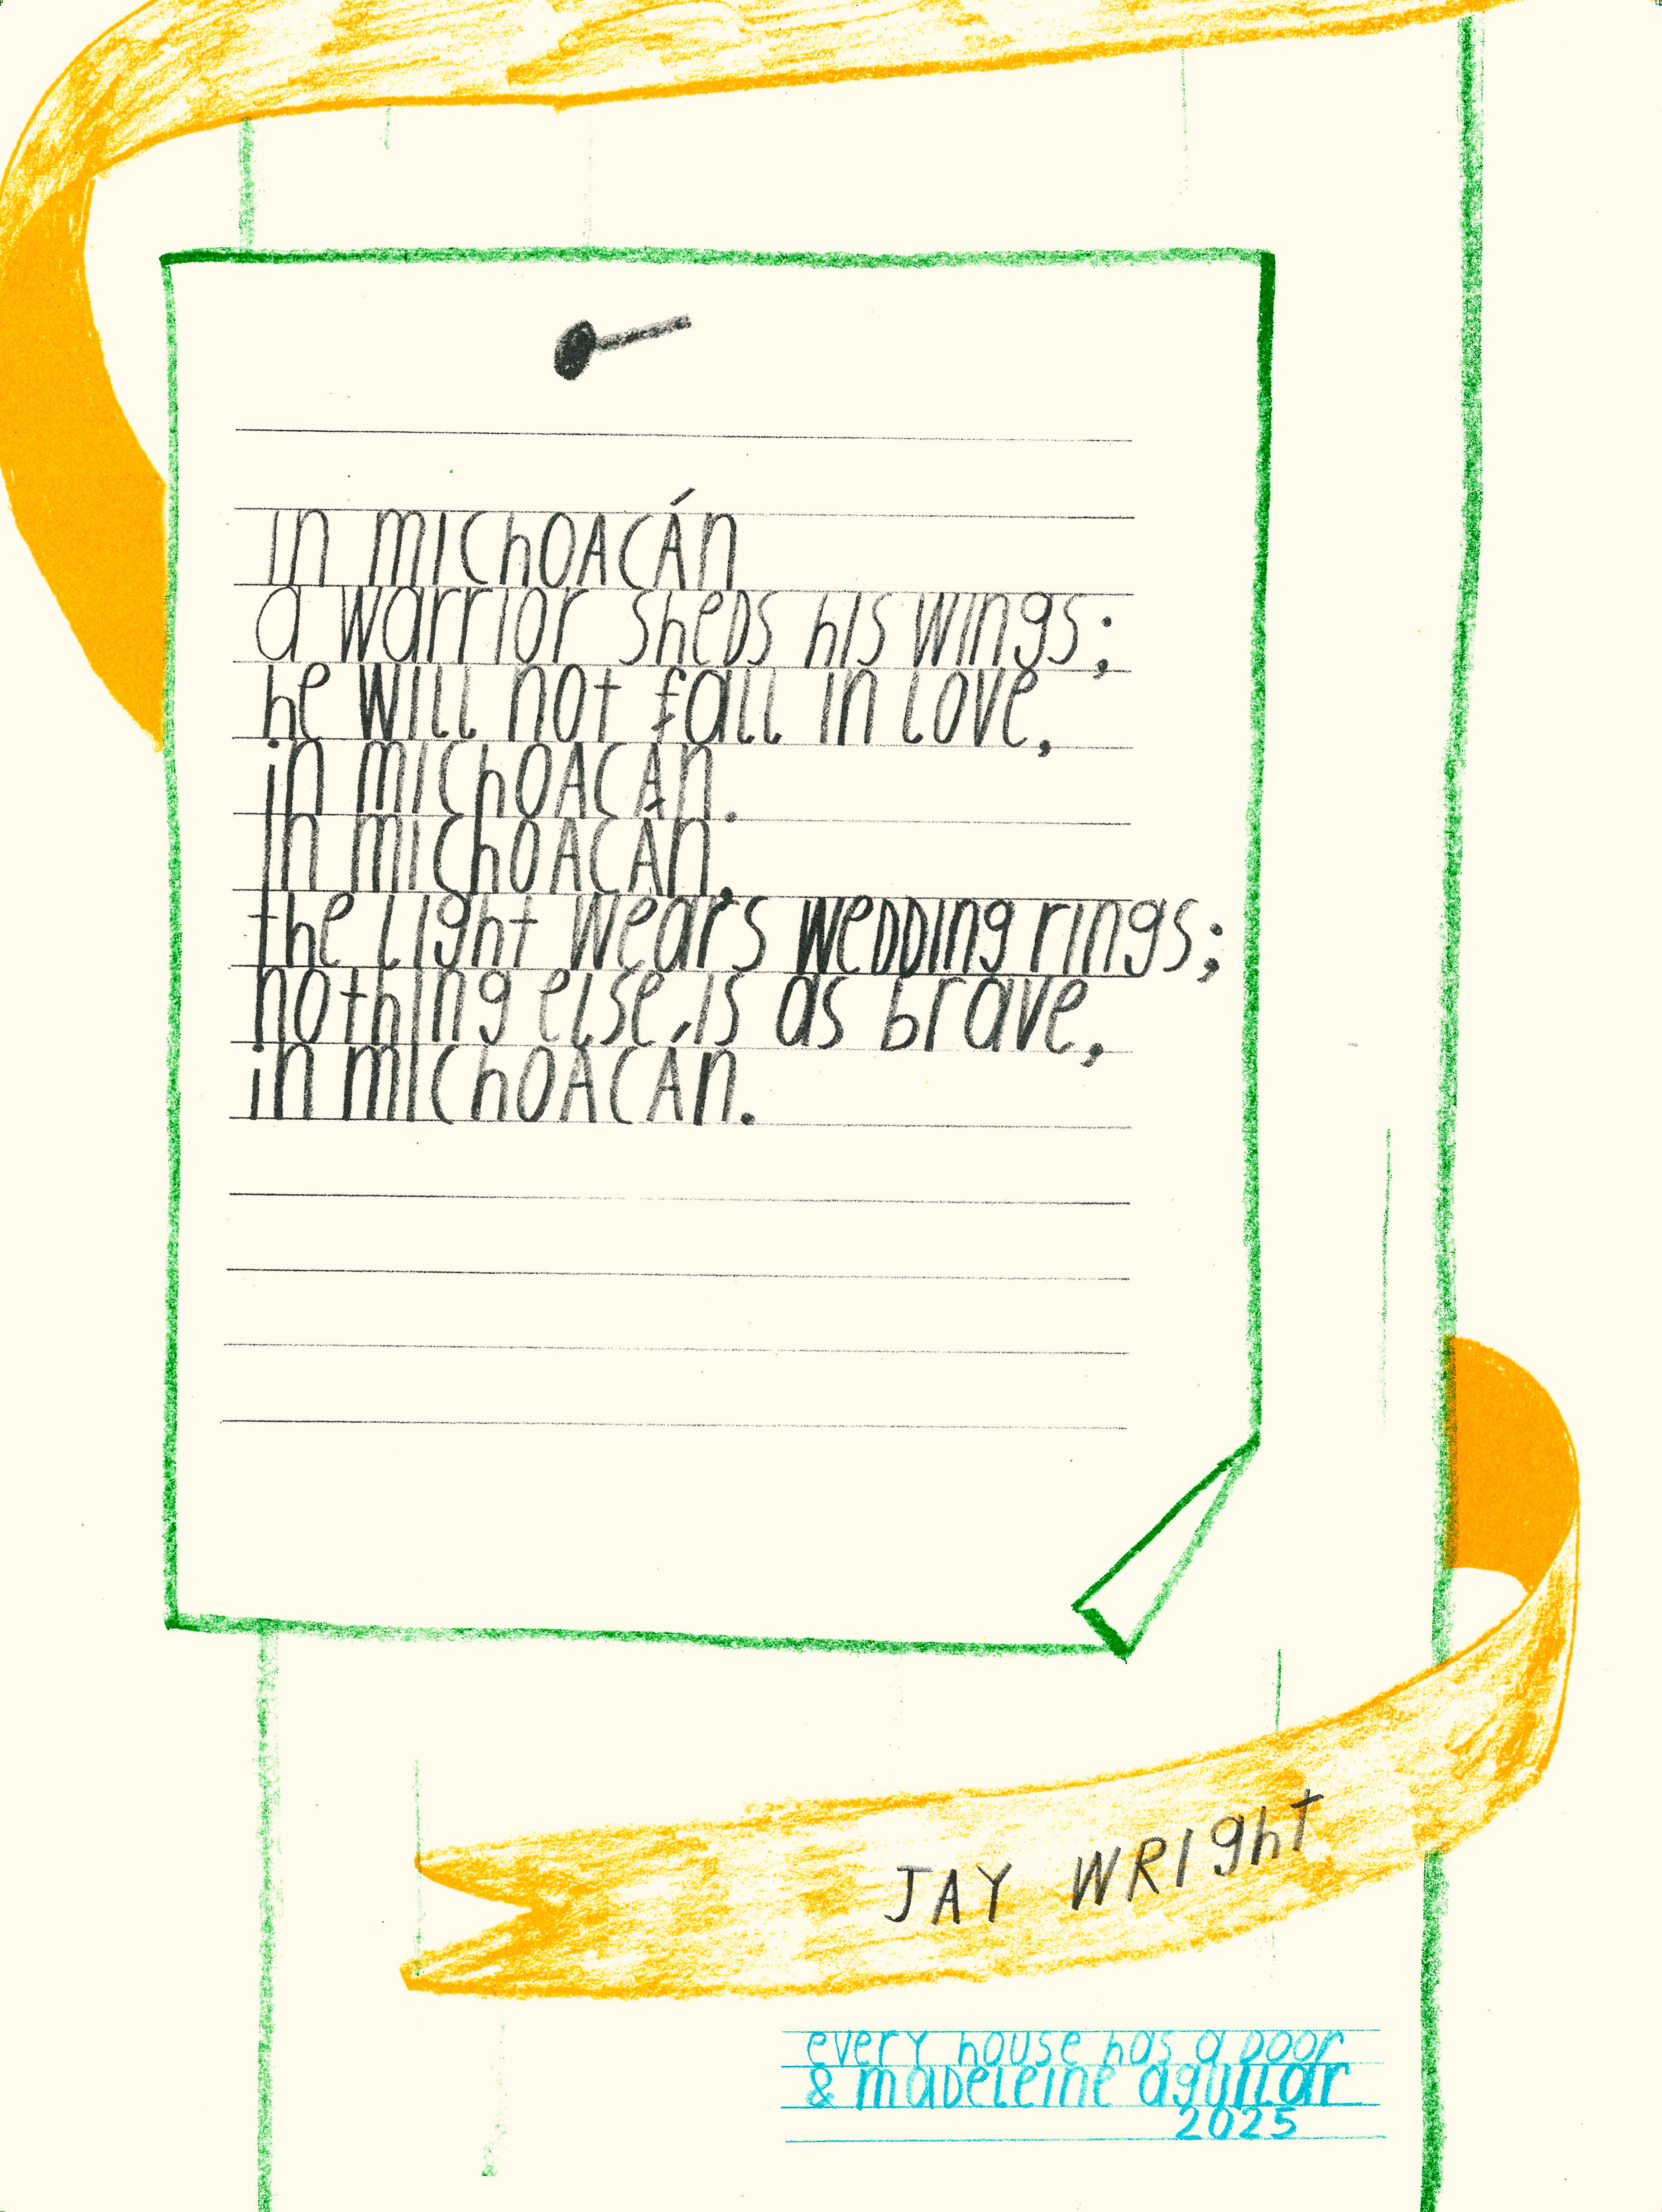 in michoacán
a warrior sheds his wings;
he will not fall in love,
in michoacán.
in michoacán,
the light wears wedding rings;
nothing else is as brave,
in michoacán.
JAY WRIght
every house has a door
& madeleine aguilar
2025